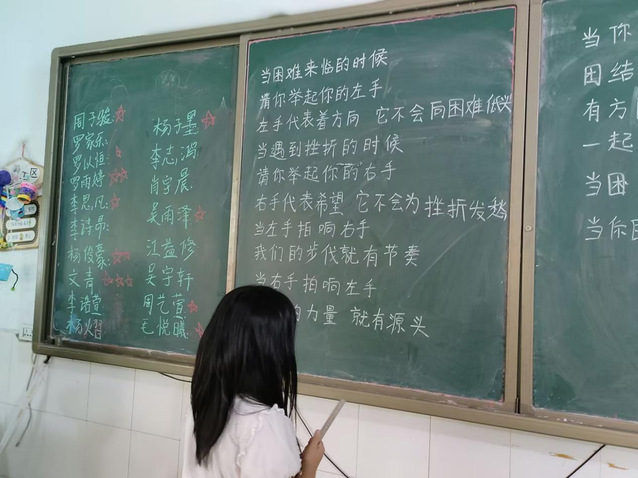 周子骏
罗家乐
罗以恒
罗雨婷
李思凡
李诗昂
杨俊豪
文青
李语萱
杨子墨
李志鸿
肖宇晨
吴雨泽
江益修
吴宇轩
周艺萱
毛悦曦
当困难来临的时候
请你举起你的左手
左手代表着方向 它不会向困难低头
当遇到挫折的时候
请你举起你的右手
右手代表希望 它不会为挫折发愁
当左手拍响右手
我们的步伐就有节奏
当右手拍响左手
的力量 就有源头
当你
团结
有方
一起
当困
当你的